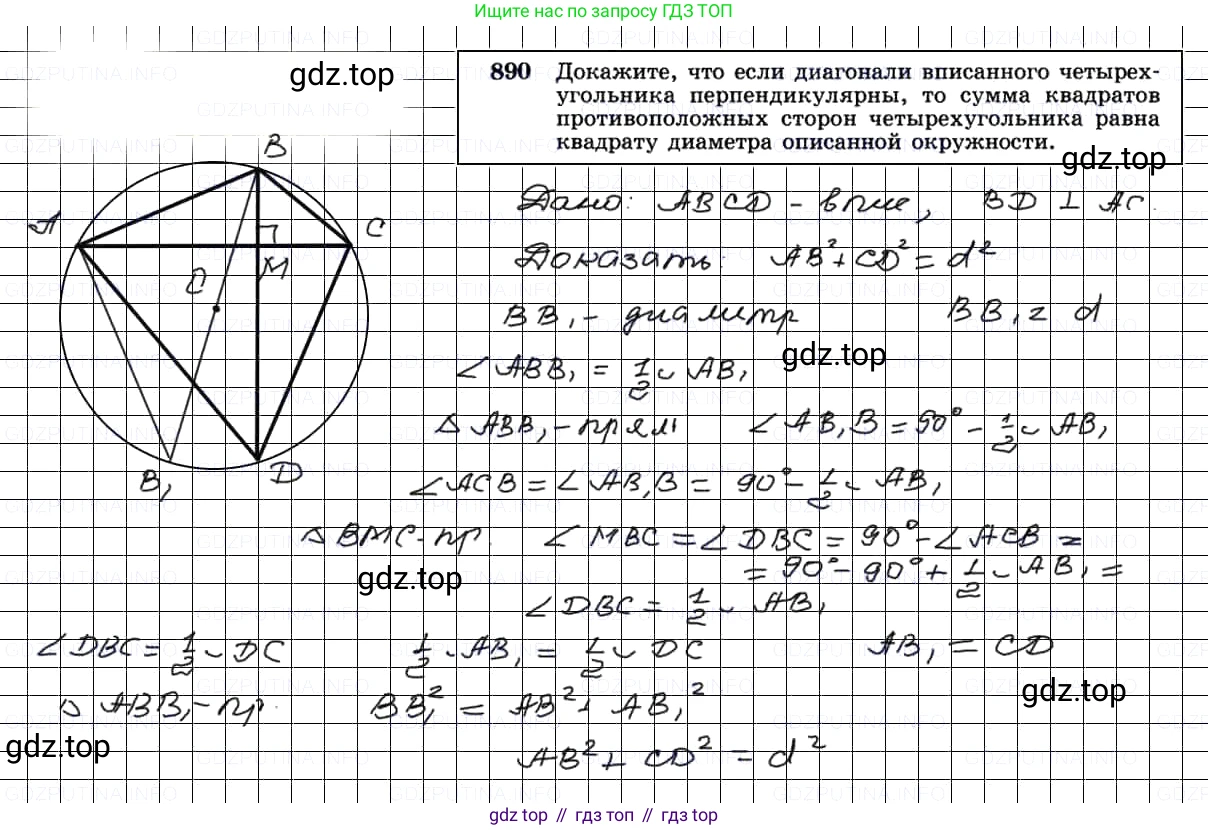 Ищите нас по запросу ГДЗ ТОП
gdz.top
890 Докажите, что если диагонали вписанного четырех-
угольника перпендикулярны, то сумма квадратов
противоположных сторон четырехугольника равна
квадрату диаметра описанной окружности.
gdz.top
B
A
C
M
O
B₁
D
Дано: ABCD - впис, BD ⊥ AC.
Доказать: AB² + CD² = d²
BB₁ - диаметр BB₁ = d
gdz.top
∠ABB₁ = 1/2 ◡ AB₁
△ ABB₁ - прям ∠AB₁B = 90° - 1/2 ◡ AB₁
∠ACB = ∠AB₁B = 90° - 1/2 ◡ AB₁
△ BMC - пр. ∠MBC = ∠DBC = 90° - ∠ACB =
= 90° - 90° + 1/2 ◡ AB₁ =
gdz.top
∠DBC = 1/2 ◡ AB₁
∠DBC = 1/2 ◡ DC 1/2 ◡ AB₁ = 1/2 ◡ DC AB₁ = CD
gdz.top
△ ABB₁ - пр. BB₁² = AB² + AB₁²
gdz.top
AB² + CD² = d²
gdz top // гдз топ // gdz top